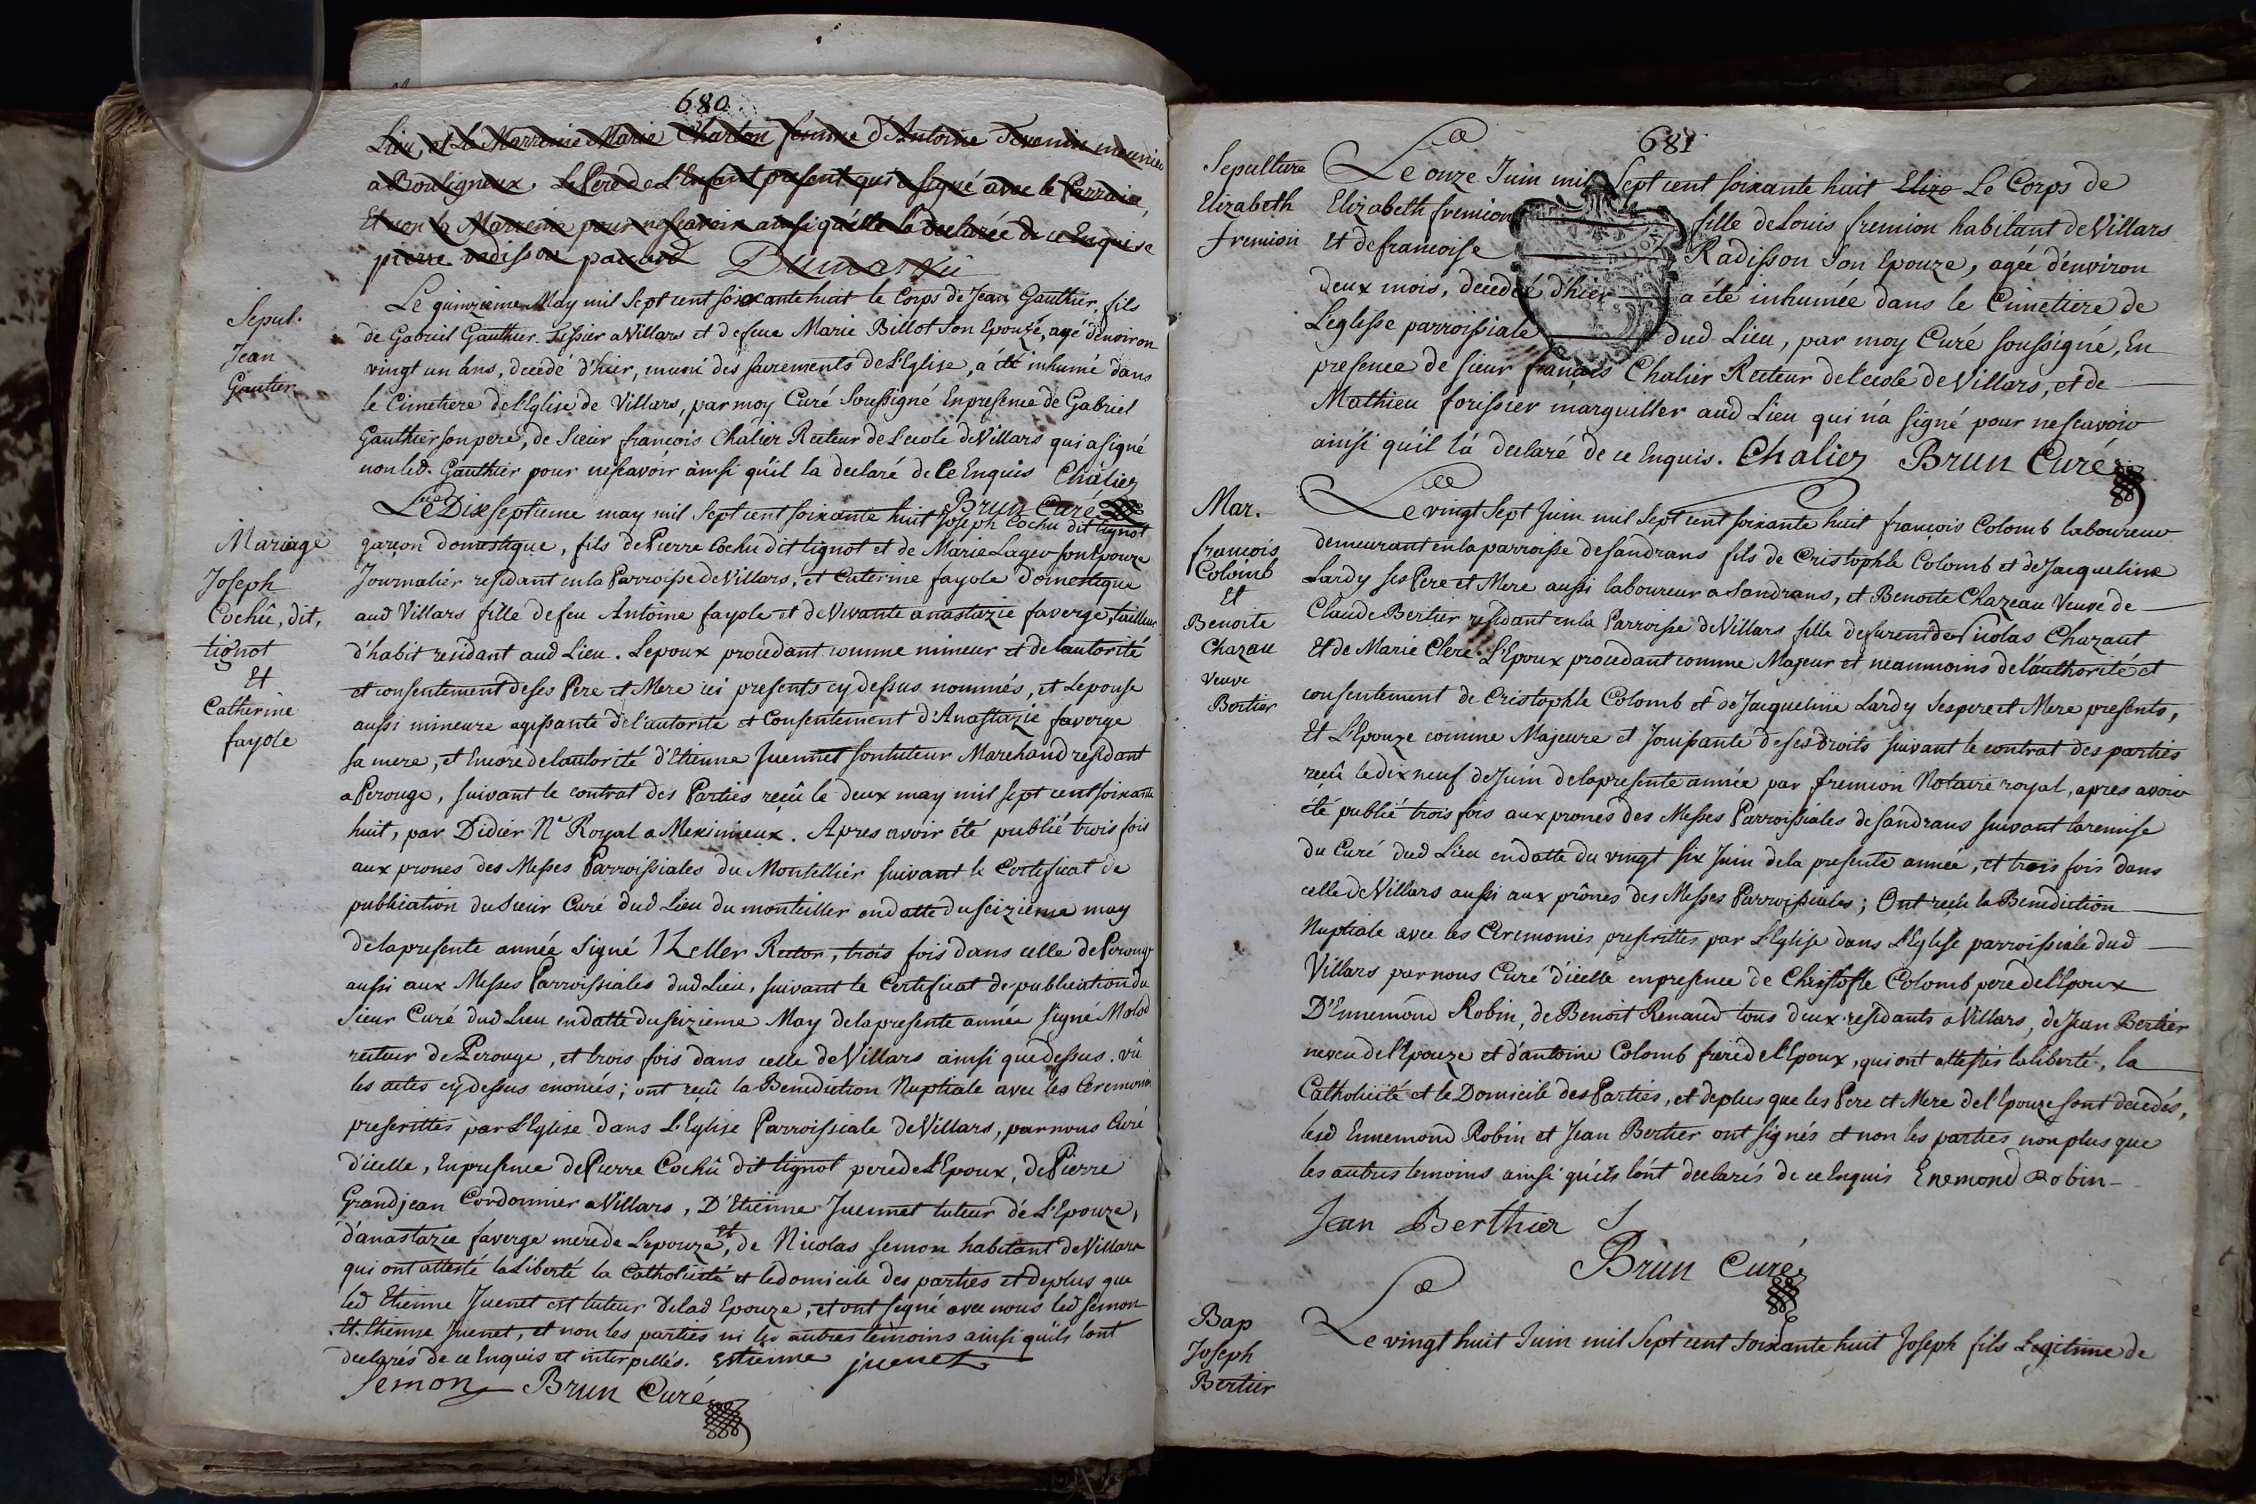 680.
Lieu, et la Marreine Marie Charton femme d'Antoine Tevenin meunier
a Bouligneux. Le Pere de L'Enfant present qui a signé avec le Parrain,
Et non la Marreine pour ne sçavoir ainsi qu'elle la declarée de ce Enquise
pierre radisson
Sepul.
Jean
Gautier
Le quinzieme May mil Sept cent soixante huit le Corps de Jean Gauthier, fils
de Gabriel Gauthier Tissier a Villars et de feue Marie Billot son Epouze, agé d'environ
vingt un ans, decedé d'hier, muni des sacrements de L'Eglise, a été inhumé dans
le Cimetiere de L'Eglise de Villars, par moy Curé Soussigné En presence de Gabriel
Gauthier son pere, de Sieur françois Chalier Recteur de L'ecole de Villars qui a signé
non led. Gauthier pour nescavoir ainsi qu'il la declaré de Ce Enquis Chaliez
Brun Curé
Le Dix septieme may mil Sept cent soixante huit Joseph Cochu dit tignot
Mariage
Joseph
Cochû, dit,
tignot
Et
Catherine
fayole
garçon domestique, fils de Pierre Cochu dit tignot et de Marie Lageo son Epouze
Journalier residant en la Parroisse de Villars, et Caterine fayole domestique
aud Villars fille de feu Antoine fayole et de Vivante anastazie faverge, tailleur
d'habit residant aud Lieu. Lepoux procedant comme mineur et de lautorité
et consentement de ses Pere et Mere ici presents cy dessus nommés, et Lepouse
aussi mineure agissante de l'autorité et Consentement d'Anastazie faverge
sa mere, et Encore de lautorité d'Etienne Juennet son tuteur Marchand residant
a Perouge, suivant le contrat des Parties reçû le deux may mil sept cent soixante
huit, par Didier Nre Royal a Meximieux. Apres avoir été publié trois fois
aux prones des Messes Parroissiales du Montellier suivant le Certificat de
publication du Sieur Curé dud Lieu du monteiller en datte du seizieme may
de la presente année Signé Zeller Rector, trois fois dans celle de Perouge
aussi aux Messes Parroissiales dud Lieu, suivant le Certificat de publication du
Sieur Curé dud Lieu en datte du seizieme May de la presente année signé
recteur de Perouge, et trois fois dans celle de Villars ainsi que dessus. vû
les actes cy dessus enoncés; ont reçû la Benediction Nuptiale avec les Ceremonies
prescrittes par L'Eglise dans L'Eglise Parroissiale de Villars, par nous Curé
d'icelle, En presence de Pierre Cochû dit tignot pere de L'Epoux, de Pierre
Grandjean Cordonnier a Villars, D'Etienne Juennet tuteur de L'Epouze,
d'anastazie faverge mere de Lepouze, et de Nicolas semon habitant de Villars
qui ont attesté la Liberté la Catholicité et le domicile des parties et de plus que
led Etienne Juenet est tuteur de lad Epouze, et ont signé avec nous led semon
Et. Etienne Juenet, et non les parties ni les autres temoins ainsi qu'ils l'ont
declarés de ce Enquis et interpellés. Estienne juenet
Semon Brun Curé
681
Sepulture
Elizabeth
fremion
Le onze Juin mil Sept cent soixante huit Elize Le Corps de
Elizabeth fremion fille de Louis fremion habitant de Villars
et de francoise Radisson son Epouze, agée d'environ
deux mois, decedée d'hier a été inhumée dans le Cimetiere de
Leglisse parroissiale dud Lieu, par moy Curé soussigné, En
presence de sieur françois Chalier Recteur de l'ecole de Villars, et de
Mathieu forissier marguiller aud Lieu qui n'a signé pour nescavoir
ainsi qu'il l'a declaré de ce Enquis. Chaliez Brun Curé
Mar.
françois
Colomb
Et
Benoite
Chazau
veuve
Bertier
Le vingt Sept Juin mil Sept cent soixante huit françois Colomb laboureur
demeurant en la parroisse de Sandrans fils de Cristophle Colomb et de Jacqueline
Lardy ses Pere et Mere aussi laboureur a Sandrans, et Benoite Chazeau Veuve de
Claude Bertier residant en la Parroisse de Villars fille de furent de Nicolas Chazaut
Et de Marie Clerc. L'Epoux procedant comme Majeur et neanmoins de l'authorité et
consentement de Cristophle Colomb et de Jacqueline Lardy ses pere et Mere presents,
Et L'Epouze comme Majeure et Jouissante de ses droits suivant le contrat des parties
reçû le dix neuf de Juin de la presente année par fremion Notaire royal, apres avoir
été publié trois fois aux prones des Messes Parroissiales de Sandrans suivant la remise
du Curé dud Lieu en datte du vingt six Juin de la presente année, et trois fois dans
celle de Villars aussi aux prônes des Messes Parroissiales; Ont reçu la Benediction
Nuptiale avec les Ceremonies prescrittes par L'Eglise dans L'Eglise parroissiale dud
Villars par nous Curé d'icelle en presence de Christofle Colomb pere de l'Epoux
D'Ennemond Robin, de Benoit Renaud tous deux residants a Villars, de Jean Bertier
neveu de l'Epouze et d'antoine Colomb frere de l'Epoux, qui ont attestés la liberté, la
Catholicité et le Domicile des Parties, et de plus que les Pere et Mere de l'Epouze sont decedés,
lesd Ennemond Robin et Jean Bertier ont signés et non les parties non plus que
les autres temoins ainsi qu'ils l'ont declarés de ce Enquis Enemond Robin
Jean Berthier
Brun Curé
Bap
Joseph
Bertier
Le vingt huit Juin mil Sept cent soixante huit Joseph fils Legitime de